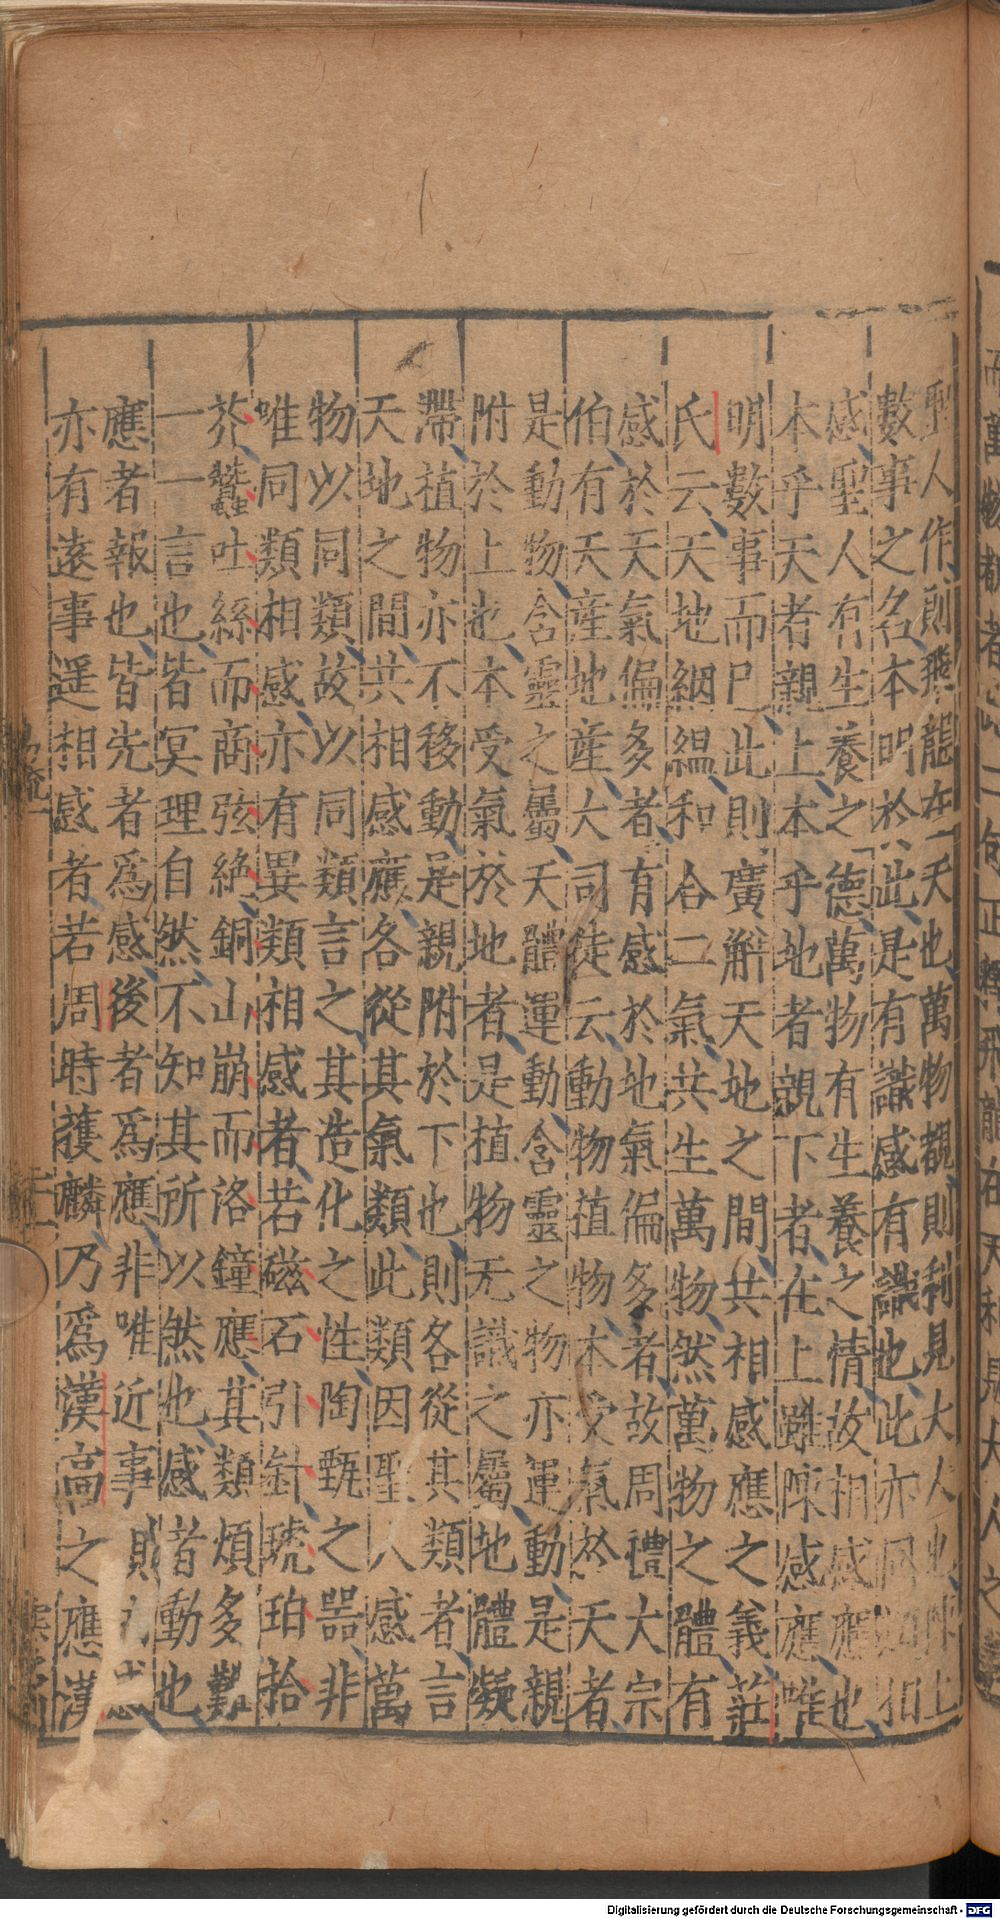 聖人作則飛龍在天也萬物覩則利見大人也陳上
數事之名本明於此是有識感有識也此亦同類相
感聖人有生養之德萬物有生養之情故相感應也
本乎天者親上本乎地者親下者在上雖陳感應唯
明數事而巳此則廣解天地之間共相感應之義莊
氏云天地絪縕和合二氣共生萬物然萬物之體有
感於天氣偏多者有感於地氣偏多者故周禮大宗
伯有天產地產大司徒云動物植物本受氣於天者
是動物含靈之屬天體運動含靈之物亦運動是親
附於上也本受氣於地者是植物无識之屬地體凝
滯植物亦不移動是親附於下也則各從其類者言
天地之間共相感應各從其氣類此類因聖人感萬
物以同類故以同類言之其造化之性陶甄之噐非
唯同類相感亦有異類相感者若磁石引針琥珀拾
芥蠶吐絲而商弦絶銅山崩而洛鐘應其類煩多難
一一言也皆冥理自然不知其所以然也感者動也
應者報也皆先者爲感後者爲應非唯近事則相感
亦有遠事遥相感者若周時獲麟乃爲漢高之應漢